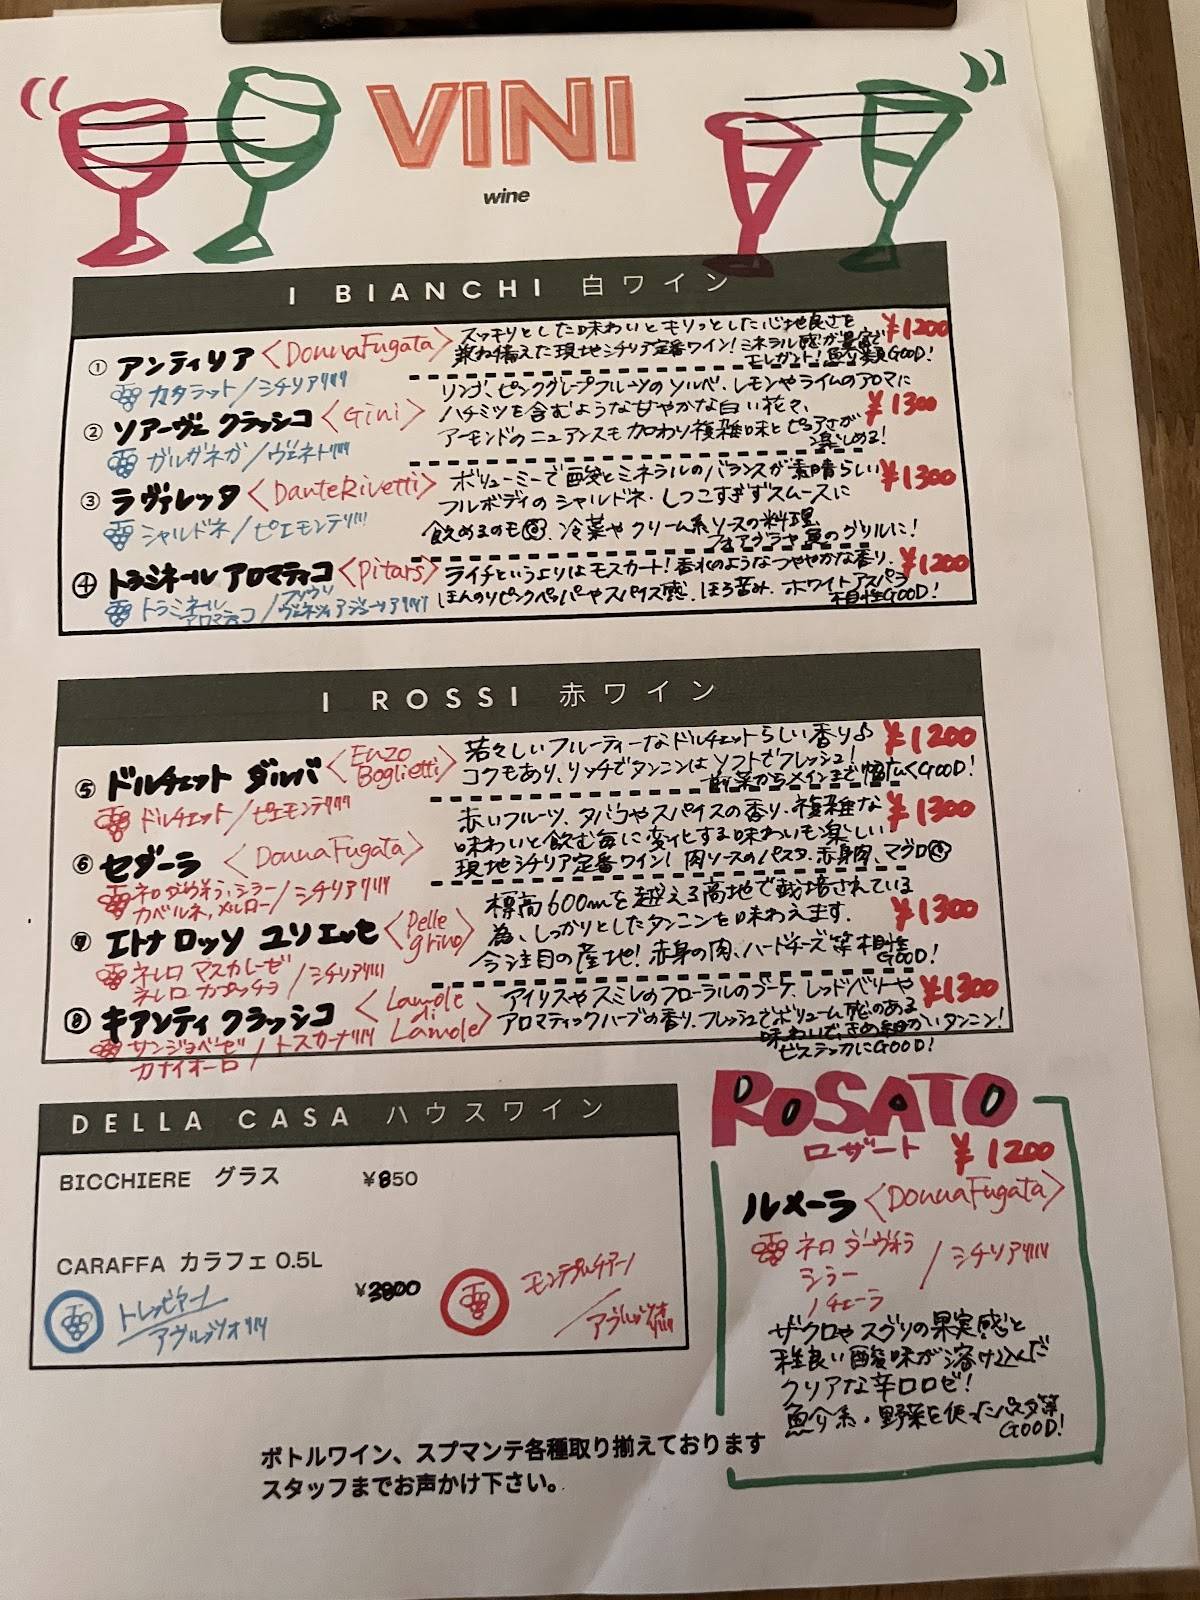 VINI
wine
I BIANCHI 白ワイン
① アンティリア <DonnaFugata> ¥1200
スッキリとした味わいとキリっとした心地良さを
兼ね備えた現地シチリア定番ワイン!ミネラル感が豊富で
エレガント!魚介類GOOD!
カタラット/シチリア州
② ソアーヴェ クラッシコ <Gini> ¥1300
リンゴ、ピンクグレープフルーツのソルベ、レモンやライムのアロマに
ハチミツを含むような甘やかな白い花々、
アーモンドのニュアンスも加わり複雑味とピュアさが
楽しめる!
ガルガネガ/ヴェネト州
③ ラヴィレッタ <DanteRivetti> ¥1300
ボリューミーで酸とミネラルのバランスが素晴らしい
フルボディのシャルドネ・しつこすぎずスムースに
飲めるのも◎、冷菜やクリーム系ソースの料理、
フォアグラや魚のグリルに!
シャルドネ/ピエモンテ州
④ トラミネール アロマティコ <Pitars> ¥1200
ライチというよりはモスカート!香水のようなつややかな香り、
ほんのりピンクペッパーやスパイス感、ほろ苦み、ホワイトアスパラ
相性GOOD!
トラミネール アロマティコ/フリウリ ヴェネツィア ジューリア州
I ROSSI 赤ワイン
⑤ ドルチェット ダルバ <Enzo Boglietti> ¥1200
若々しいフルーティーなドルチェットらしい香り♪
コクもあり、リッチでタンニンはソフトでフレッシュ!
前菜からメインまで幅広くGOOD!
ドルチェット/ピエモンテ州
⑥ セダーラ <DonnaFugata> ¥1300
赤いフルーツ、タバコやスパイスの香り、複雑な
味わいと飲む毎に変化する味わいも楽しい
現地シチリア定番ワイン!肉ソースのパスタ、赤身肉、マグロ◎
ネロ ダヴォラ、シラー/シチリア州
カベルネ、メルロー
⑦ エトナ ロッソ ユリエッセ <Pellegrino> ¥1300
標高600mを越える高地で栽培されている
為、しっかりとしたタンニンを味わえます。
今注目の産地!赤身の肉、ハードチーズ等相性
GOOD!
ネレロ マスカレーゼ/シチリア州
ネレロ カプッチョ
⑧ キアンティ クラッシコ <Lamole di Lamole> ¥1300
アイリスやスミレのフローラルのブーケ、レッドベリーや
アロマティックハーブの香り、フレッシュでボリューム感のある
味わいできめ細かいタンニン!
ビステッカにGOOD!
サンジョベーゼ/トスカーナ州
カナイオーロ
DELLA CASA ハウスワイン
BICCHIERE グラス ¥850
CARAFFA カラフェ 0.5L
¥3800
トレッビアーノ/アヴルッツォ州
モンテプルチアーノ/アヴルッツォ州
ROSATO
ロザート ¥1200
ルメーラ <DonnaFugata>
ネロ ダーヴォラ/シチリア州
シラー
ノチェーラ
ザクロやスグリの果実感と
程良い酸味が溶け込んだ
クリアな辛口ロゼ!
魚介系・野菜を使ったパスタ等
GOOD!
ボトルワイン、スプマンテ各種取り揃えております
スタッフまでお声かけ下さい。